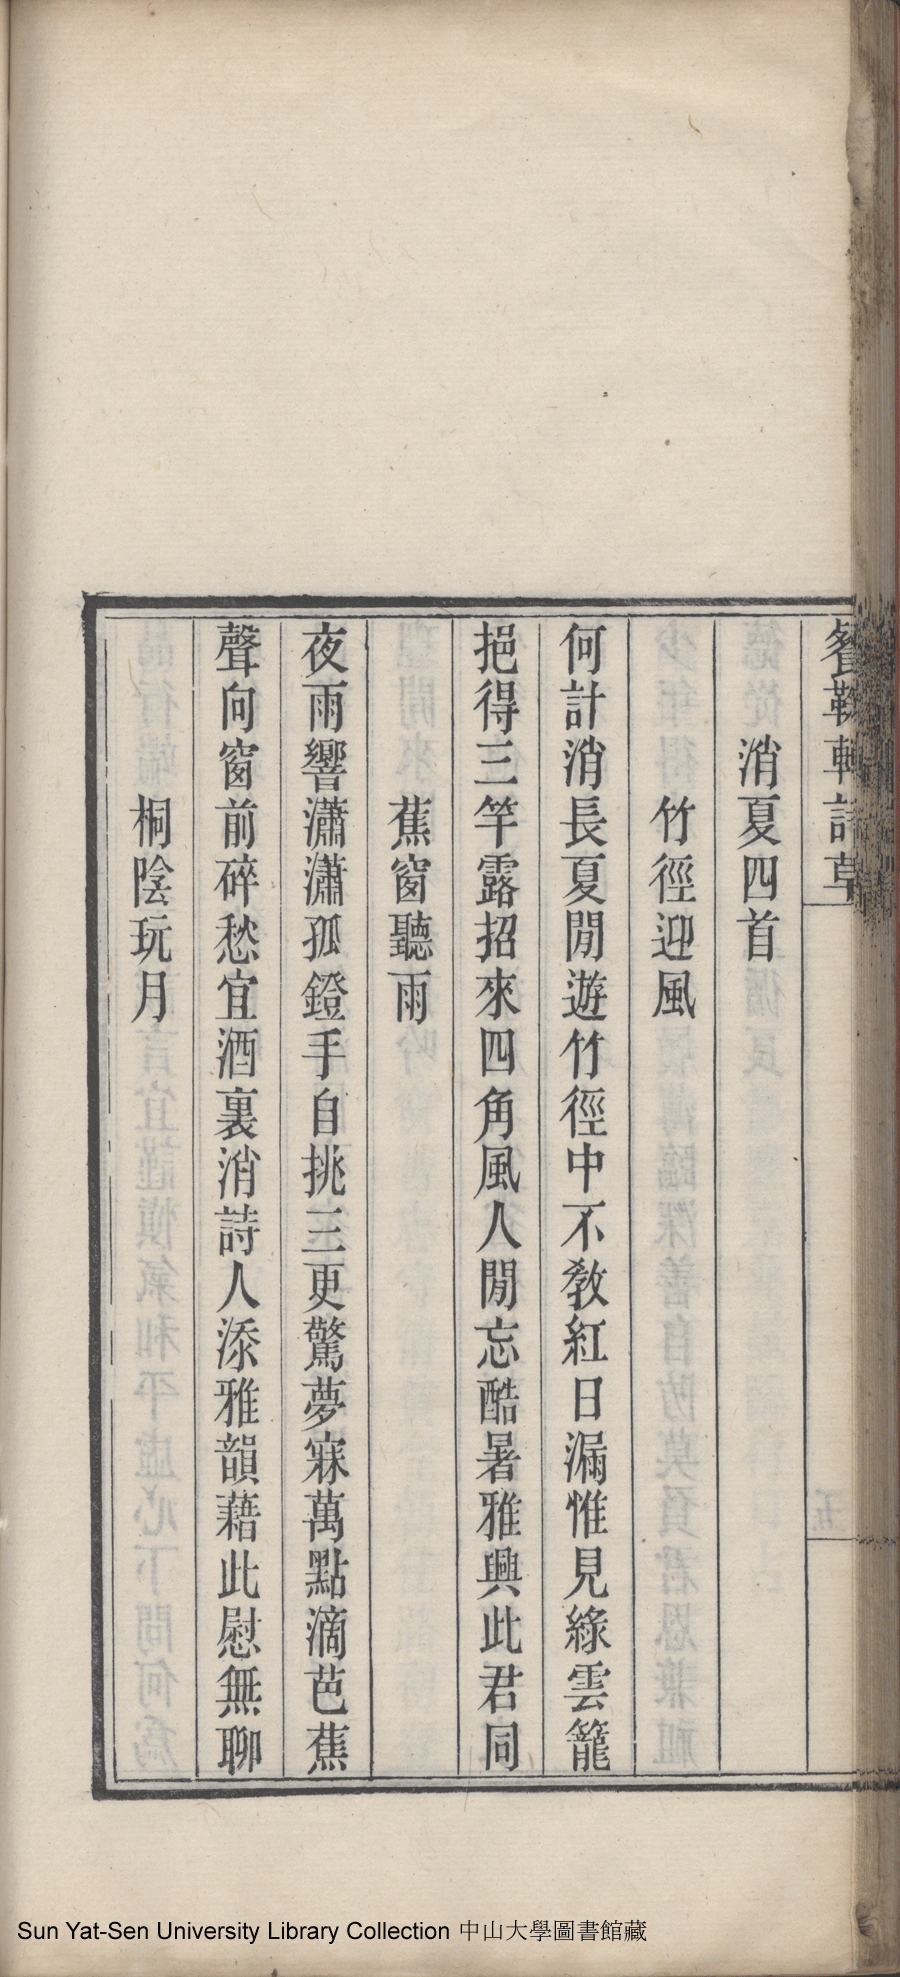 消夏四首
竹徑迎風
何計消長夏閒遊竹徑中不敎紅日漏惟見綠雲籠
挹得三竿露招來四角風人閒忘酷暑雅興此君同
蕉窗聽雨
夜雨響瀟瀟孤鐙手自挑三更驚夢寐萬點滴芭蕉
聲向窗前碎愁宜酒裏消詩人添雅韻藉此慰無聊
桐陰玩月
Sun Yat-Sen University Library Collection 中山大學圖書館藏